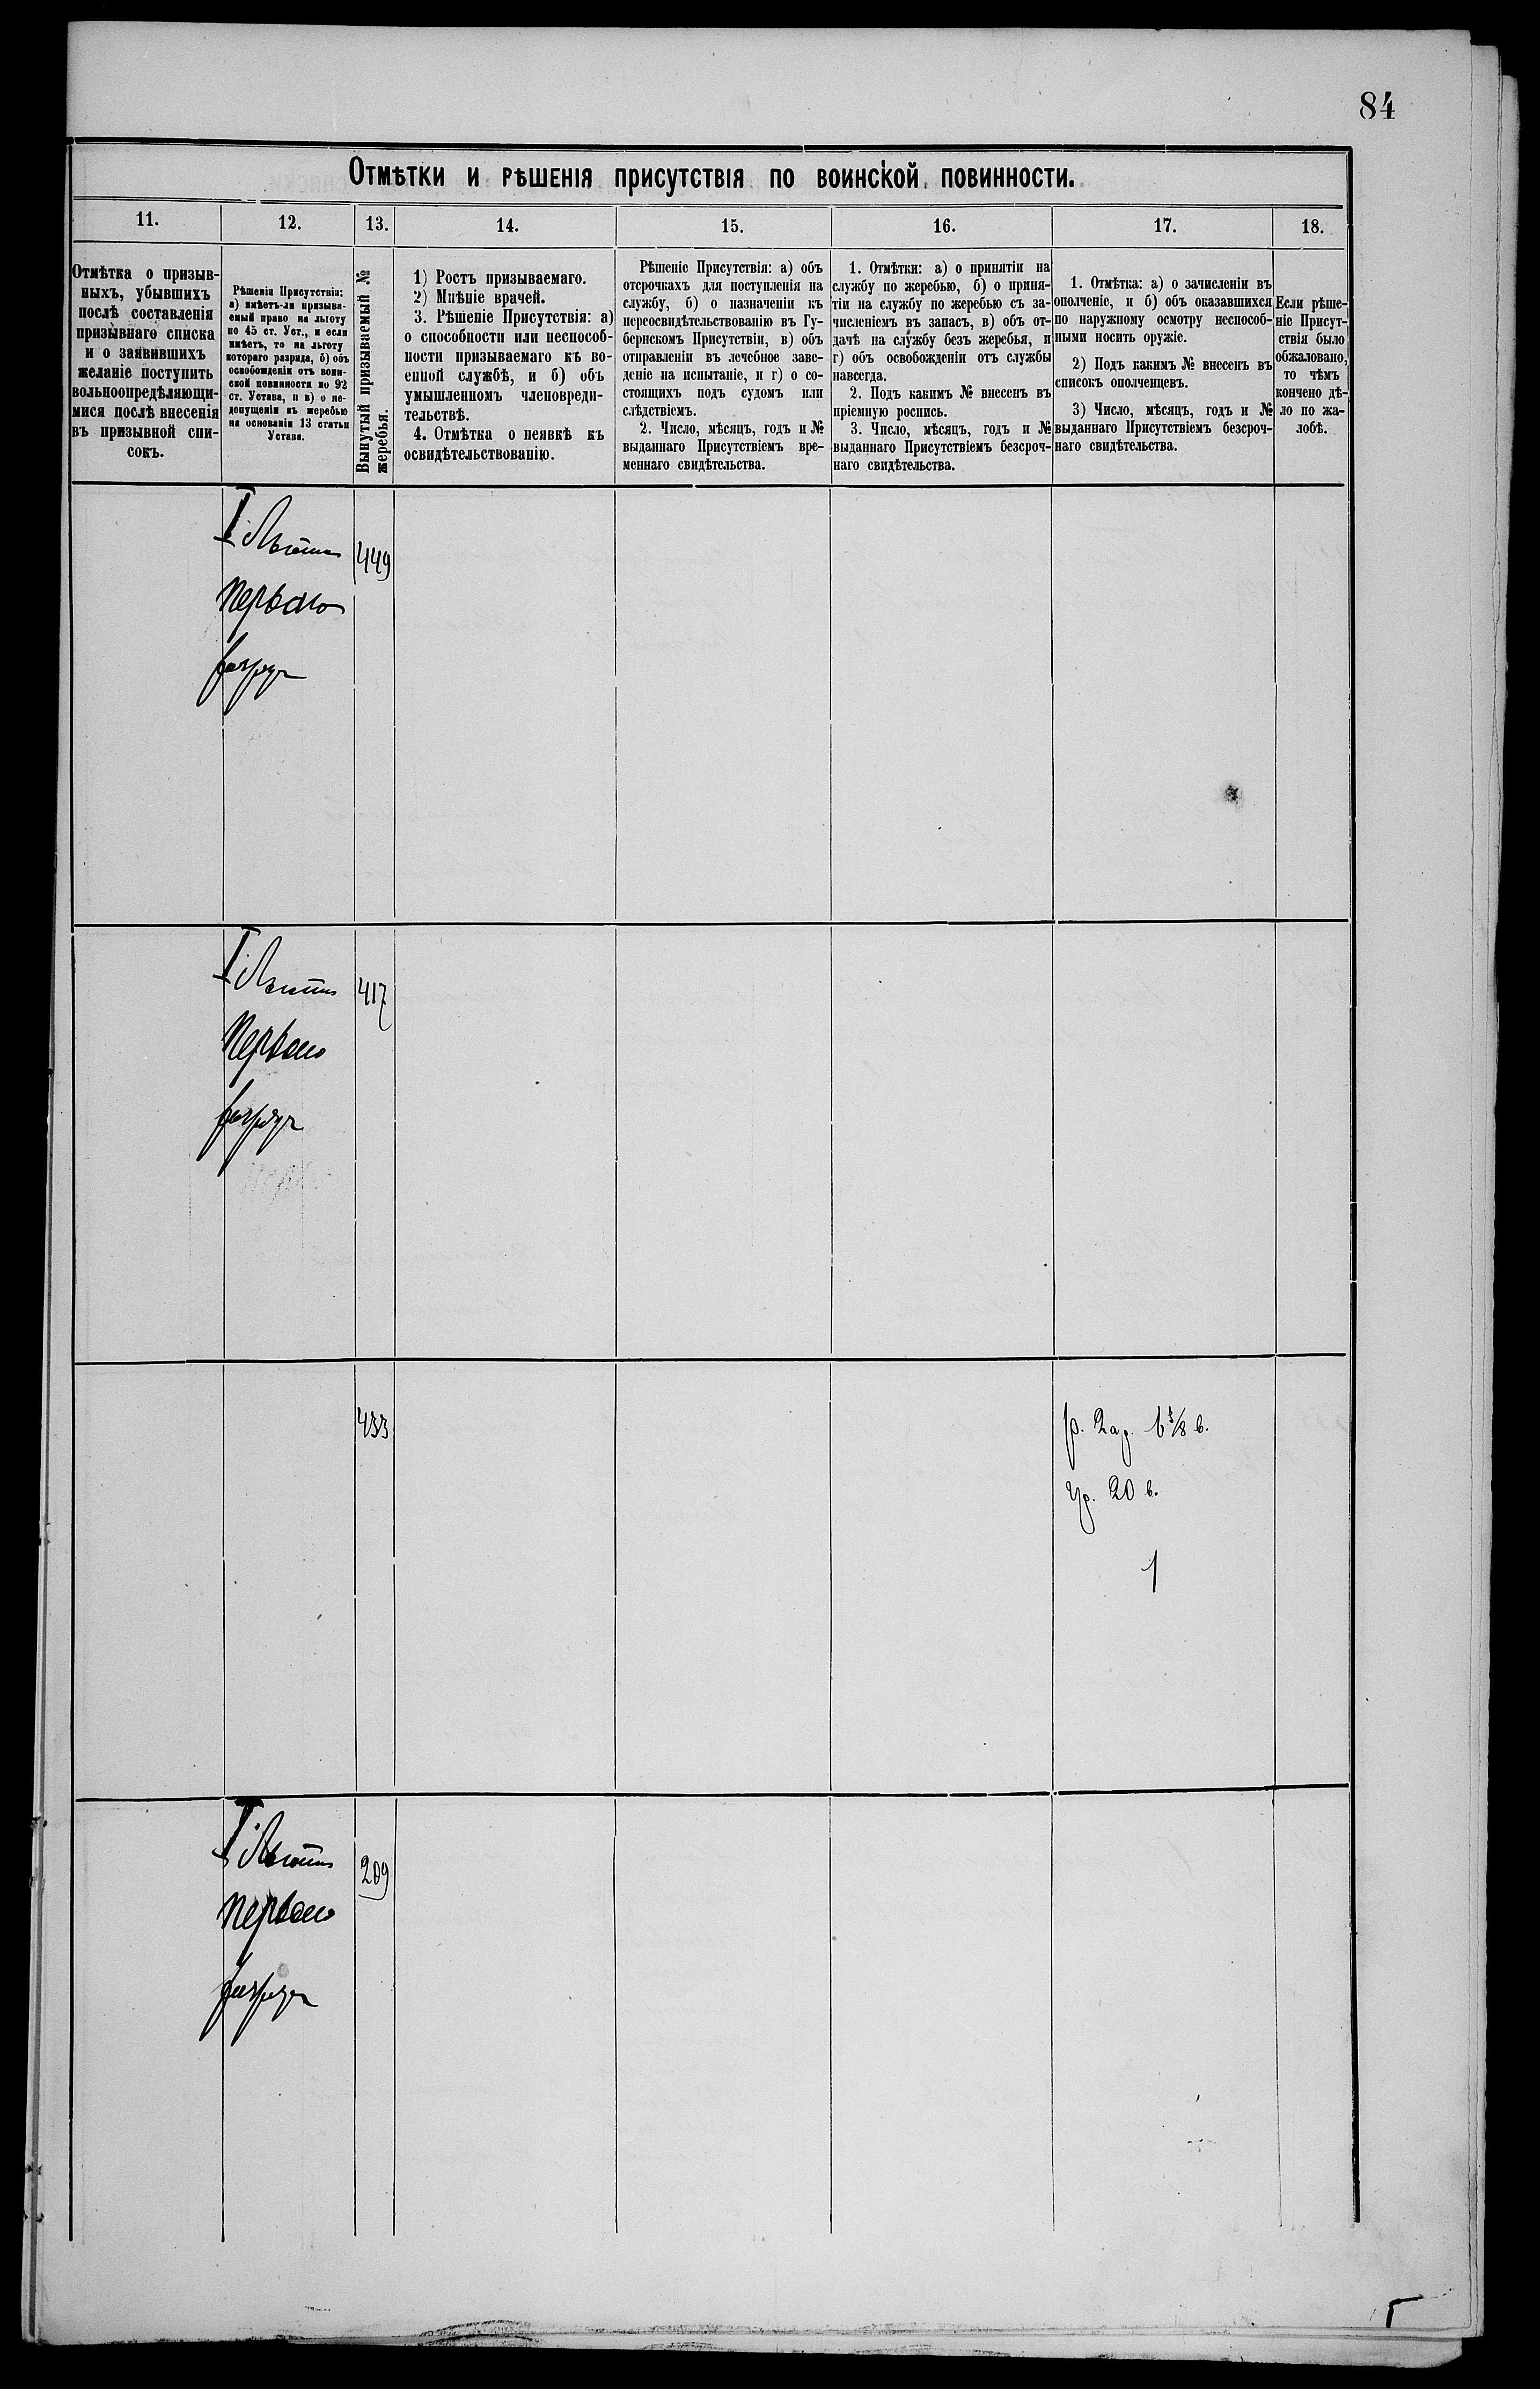 84
Отмѣтки и рѣшенія присутствія по воинской повинности.
11.
12.
13.
14.
15.
16.
17.
18.
Отмѣтка о призыв-
ныхъ, убывшихъ
послѣ составленія
призывнаго списка
и о заявившихъ
желаніе поступить
вольноопредѣляющи-
мися послѣ внесенія
въ призывной спи-
сокъ.
Рѣшенія Присутствія:
а) имѣетъ-ли призыва-
емый право на льготу
по 45 ст. Уст., и если
имѣетъ, то на льготу
котораго разряда, б) объ
освобожденіи отъ воин-
ской повинности по 92
ст. Устава, и в) о не-
допущеніи къ жеребью
на основаніи 13 статьи
Устава.
Вынутый призываемый №
жеребья.
1) Ростъ призываемаго.
2) Мнѣніе врачей.
3. Рѣшеніе Присутствія: а)
о способности или неспособ-
ности призываемаго къ во-
енной службѣ, и б) объ
умышленномъ членовреди-
тельствѣ.
4. Отмѣтка о неявкѣ къ
освидѣтельствованію.
Рѣшеніе Присутствія: а) объ
отсрочкахъ для поступленія на
службу, б) о назначеніи къ
переосвидѣтельствованію въ Гу-
бернскомъ Присутствіи, в) объ
отправленіи въ лечебное заве-
деніе на испытаніе, и г) о со-
стоящихъ подъ судомъ или
слѣдствіемъ.
2. Число, мѣсяцъ, годъ и №
выданнаго Присутствіемъ вре-
меннаго свидѣтельства.
1. Отмѣтки: а) о принятіи на
службу по жеребью, б) о приня-
тіи на службу по жеребью съ за-
численіемъ въ запасъ, в) объ от-
дачѣ на службу безъ жеребья, и
г) объ освобожденіи отъ службы
навсегда.
2. Подъ какимъ № внесенъ въ
пріемную роспись.
3. Число, мѣсяцъ, годъ и №
выданнаго Присутствіемъ безсроч-
наго свидѣтельства.
1. Отмѣтка: а) о зачисленіи въ
ополченіе, и б) объ оказавшихся
по наружному осмотру неспособ-
ными носить оружіе.
2) Подъ какимъ № внесенъ въ
списокъ ополченцевъ.
3) Число, мѣсяцъ, годъ и №
выданнаго Присутствіемъ безсроч-
наго свидѣтельства.
Если рѣше-
ніе Присут-
ствія было
обжаловано,
то чѣмъ
кончено дѣ-
ло по жа-
лобѣ.
I Льгота 449
перваго
разряда
I Льгота 417
перваго
разряда
433
р. 2 ар. 6 3/8 в.
гр. 20 в.
1
I Льгота 209
перваго
разряда